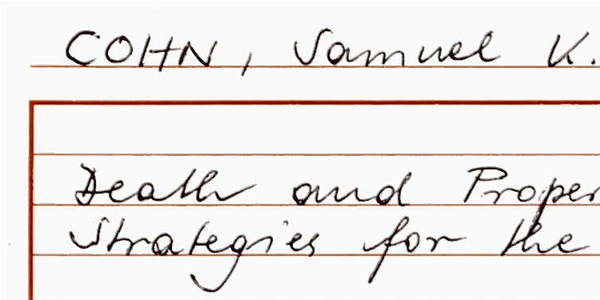 COHN, Samuel K.
Death and Proper
Strategies for the